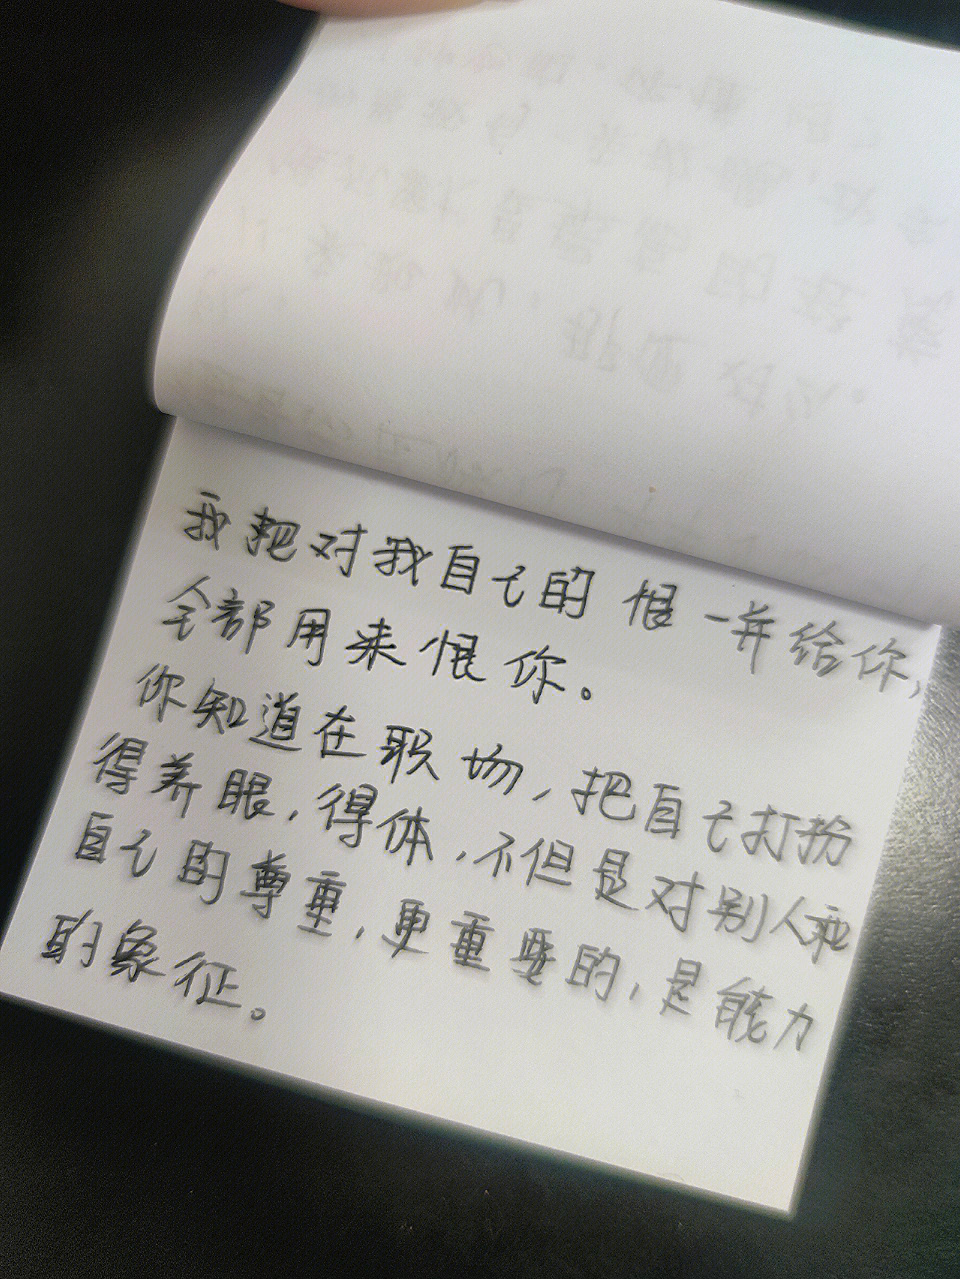 我把对我自己的恨一并给你,
全部用来恨你。
你知道在职场,把自己打扮
得养眼,得体,不但是对别人和
自己的尊重,更重要的,是能力
的象征。